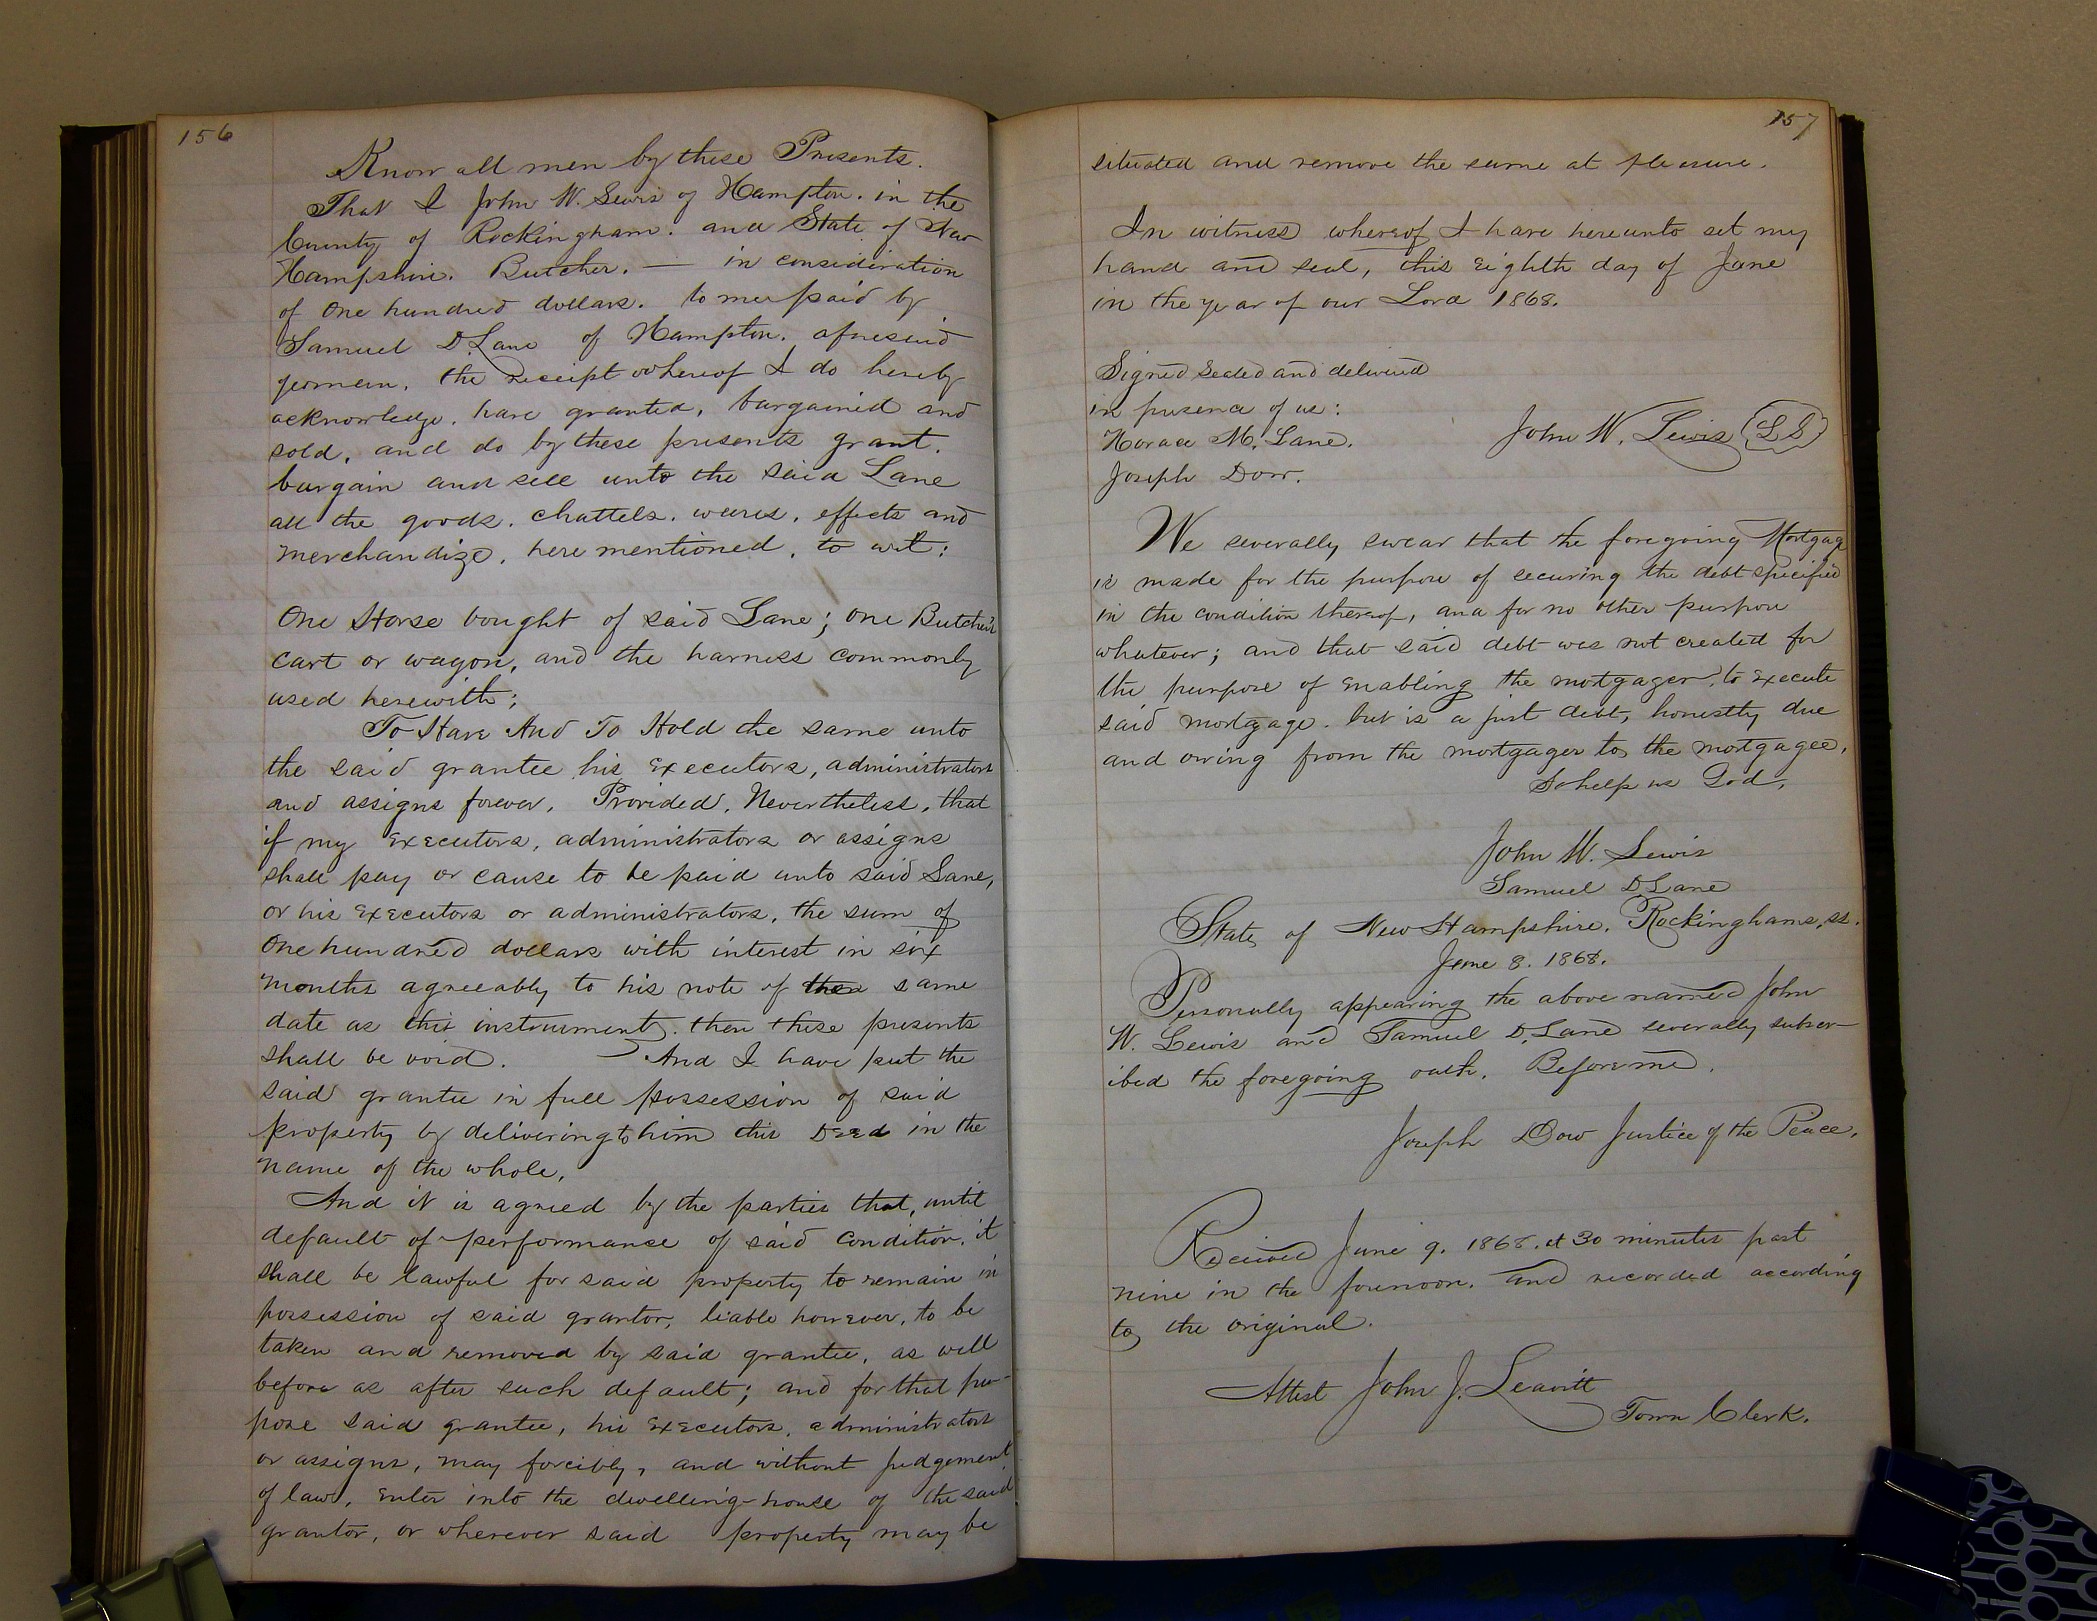 156
Know all men by these Presents.
That I John W. Lewis of Hampton. in the
County of Rockingham. and State of New
Hampshire. Butcher. — in consideration
of One hundred dollars. to me paid by
Samuel D. Lane of Hampton. aforesaid
yeoman, the receipt whereof I do hereby
acknowledge. have granted, bargained and
sold, and do by these presents grant.
bargain and sell unto the said Lane
all the goods. chattels. wares. effects and
merchandize. here mentioned, to wit:
One Horse bought of said Lane; one Butcher's
Cart or wagon, and the harness commonly
used herewith;
To Have And To Hold the same unto
the said grantee his Executors, administrators
and assigns forever, Provided, Nevertheless, that
if my Executors, administrators or assigns
shall pay or cause to be paid unto said Lane,
or his Executors or administrators, the sum of
One hundred dollars with interest in six
months agreeably to his note of the same
date as this instrument, then these presents
shall be void. And I have put the
said grantee in full possession of said
property by delivering to him this Deed in the
name of the whole,
And it is agreed by the parties that, until
default of performance of said condition, it
shall be lawful for said property to remain in
possession of said grantor, liable however, to be
taken and removed by said grantee, as well
before as after such default; and for that pur-
pose said grantee, his Executors, administrators
or assigns, may forcibly, and without judgement
of law, enter into the dwelling-house of the said
grantor, or wherever said property may be
157
situated and remove the same at pleasure.
In witness whereof I have hereunto set my
hand and seal, this Eighth day of June
in the year of our Lord 1868.
Signed sealed and delivered
in presence of us:
Horace M. Lane.
John W. Lewis (LS)
Joseph Dow.
We severally swear that the foregoing Mortgage
is made for the purpose of securing the debt specified
in the condition thereof, and for no other purpose
whatever; and that said debt was not created for
the purpose of enabling the mortgager to Execute
said mortgage. but is a just debt, honestly due
and owing from the mortgager to the mortgagee,
So help us God,
John W. Lewis
Samuel D Lane
State of New Hampshire. Rockingham, ss.
June 8. 1868.
Personally appearing the above named John
W. Lewis and Samuel D. Lane severally subscr-
ibed the foregoing oath. Before me,
Joseph Dow Justice of the Peace.
Received June 9. 1868. at 30 minutes past
nine in the forenoon. and recorded according
to the original.
Attest John J. Leavitt
Town Clerk.